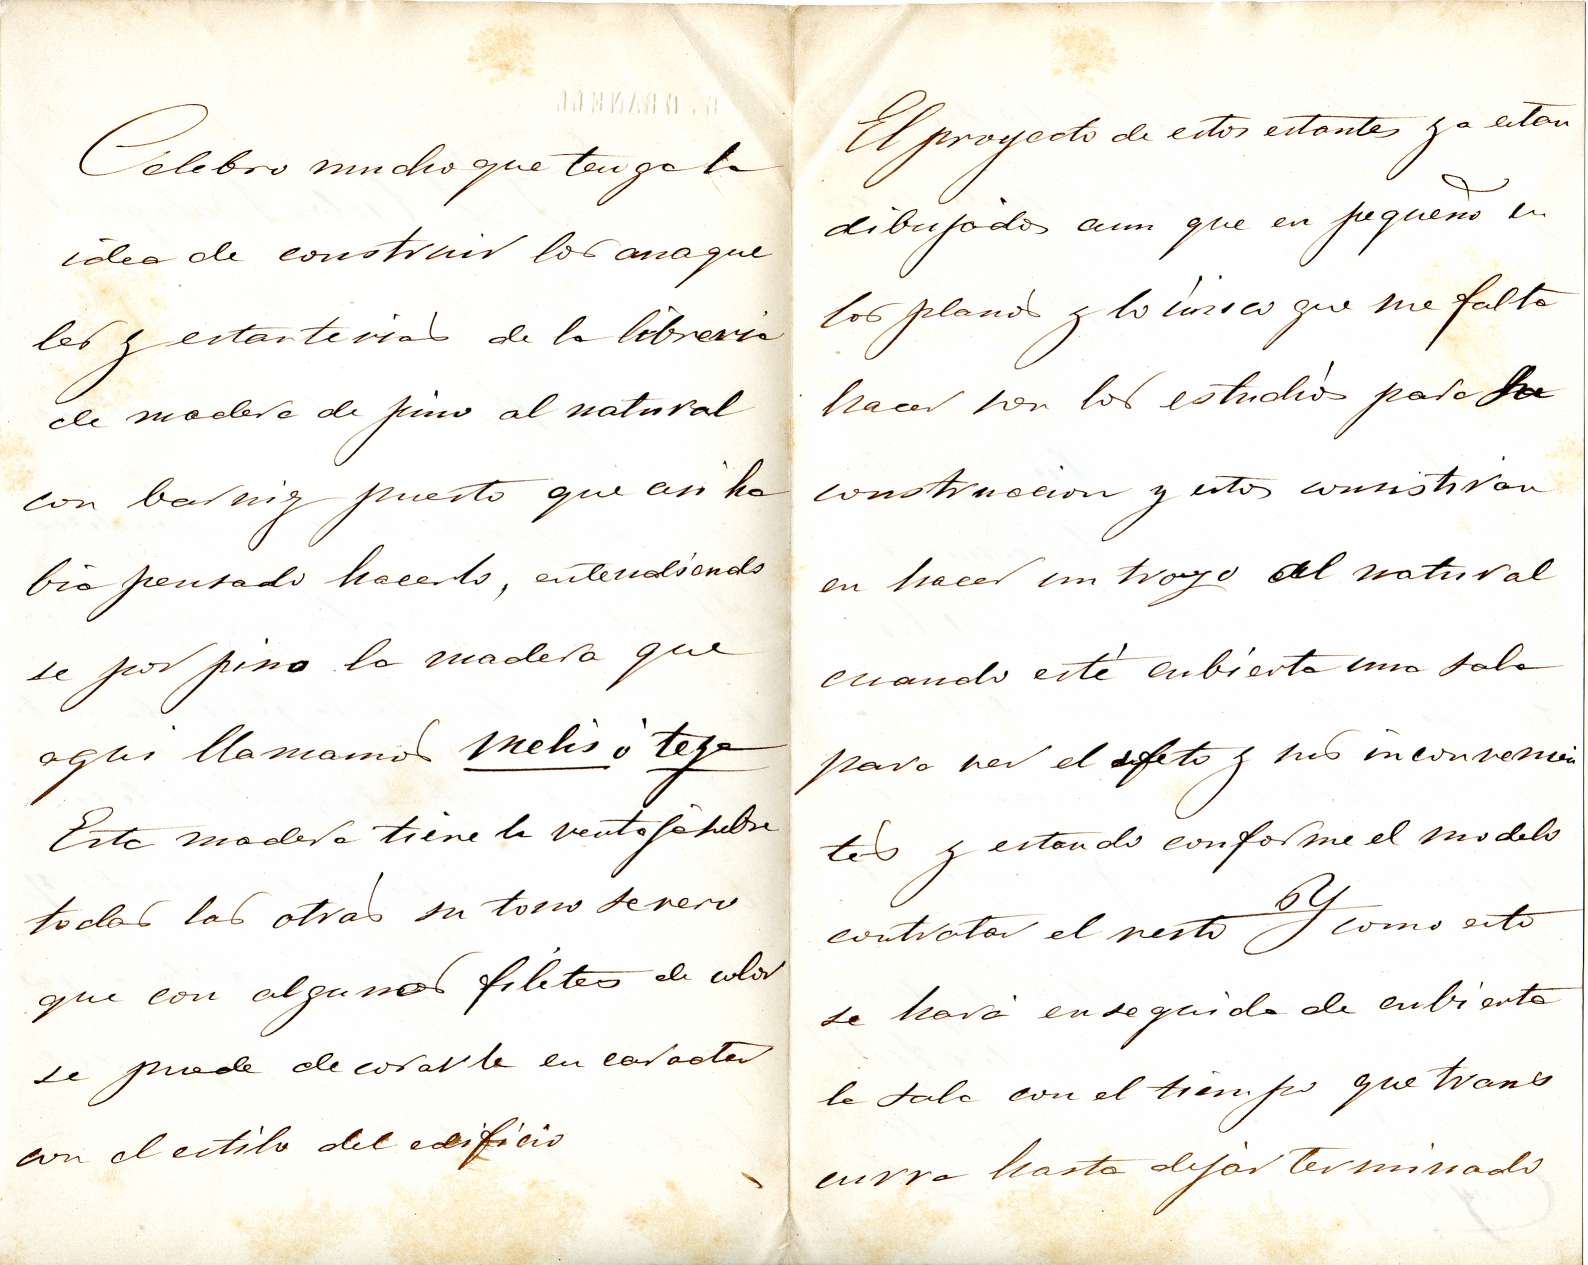 Celebro mucho que tenga la
idea de construir los anaque
les y estanterias de la libreria
de madera de pino al natural
con barniz puesto que asi ha
bia pensado hacerlo, entendiendo
se por pino la madera que
aqui llamamos melis ó teya
Esta madera tiene la ventaja sobre
todas las otras su tono severo
que con algunos filetes de color
se puede decorarla en caracter
con el estilo del edificio
El proyecto de estos estantes ya estan
dibujados aun que en pequeño en
los planos y lo único que me falta
hacer son los estudios para la
construccion y estos consistiran
en hacer un trozo al natural
cuando esté cubierta una sala
para ver el efeto y sus inconvenien
tes y estando conforme el modelo
contratar el resto y como esto
se hará enseguida de cubierta
la sala con el tiempo que trans
curra hasta dejar terminado